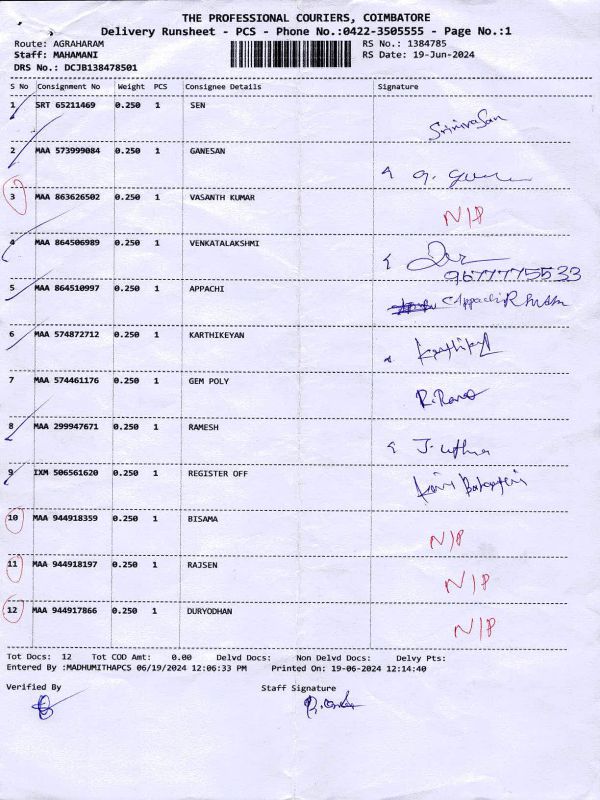 THE PROFESSIONAL COURIERS, COIMBATORE
Delivery Runsheet - PCS - Phone No.:0422-3505555 - Page No.:1
Route: AGRAHARAM RS No.: 1384785
Staff: MAHAMANI RS Date: 19-Jun-2024
DRS No.: DCJB138478501
S No Consignment No Weight PCS Consignee Details Signature
1 SRT 65211469 0.250 1 SEN Srinivasan
2 MAA 573999084 0.250 1 GANESAN
3 MAA 863626502 0.250 1 VASANTH KUMAR N/P
4 MAA 864506989 0.250 1 VENKATALAKSHMI
9677775533
5 MAA 864510997 0.250 1 APPACHI Appachi
6 MAA 574872712 0.250 1 KARTHIKEYAN
7 MAA 574461176 0.250 1 GEM POLY
8 MAA 299947671 0.250 1 RAMESH
9 IXM 506561620 0.250 1 REGISTER OFF
10 MAA 944918359 0.250 1 BISAMA N/P
11 MAA 944918197 0.250 1 RAJSEN N/P
12 MAA 944917866 0.250 1 DURYODHAN N/P
Tot Docs: 12 Tot COD Amt: 0.00 Delvd Docs: Non Delvd Docs: Delvy Pts:
Entered By :MADHUMITHAPCS 06/19/2024 12:06:33 PM Printed On: 19-06-2024 12:14:40
Verified By Staff Signature